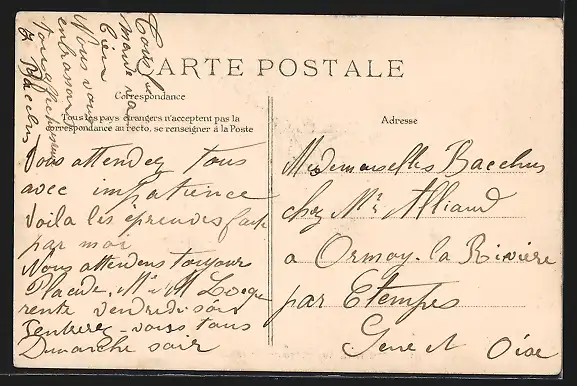 CARTE POSTALE
Correspondance
Tous les pays étrangers n'acceptent pas la
correspondance au recto, se renseigner à la Poste
Adresse
Vous attendez tous
avec impatience
Voila les épreuves
par moi
Nous attendons toujours
Placide, Mr M
rentre vendredi soir
Rentrerez-vous tous
Dimanche soir
Tout le
monde va
bien
Nous vous
embrassons
tous
Bacchus
Mesdemoiselles Bacchus
chez Mr Alliaud
a Ormoy-la Rivière
par Etampes
Seine et Oise